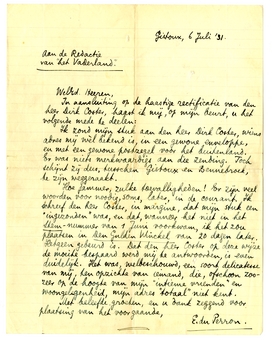 Gistoux, 6 Juli '31.
Aan de Redactie
van het Vaderland.
WelEd. Heeren,
In aansluiting op de haastige rectificatie van den
heer Dirk Coster, haast ik mij, op mijn beurt, u het
volgende mede te deelen:
Ik zond mijn stuk aan den heer Dirk Coster, wiens
adres mij wel bekend is, in een gewone enveloppe,
en met een gewone postzegel voor het buitenland.
Er was niets merkwaardigs aan die zending. Toch
schijnt zij dus, tusschen Gistoux en Bennebroek,
te zijn weggeraakt.
Hoe jammer, zulke toevalligheden! Er zijn veel
woorden voor noodig soms, later, in de courant. Ik
schreef den heer Coster, en meende, dat mijn stuk een
"ingezonden" was, en dat, wanneer het niet in het
Stem-nummer van 1 Juni voorkwam, ik het zou
plaatsen in Den Gulden Winckel van 20 dagen later.
Hetgeen gebeurd is. Dat den heer Coster op deze wijze
de moeite bespaard werd mij te antwoorden, is even
duidelijk. Het was, welbeschouwd, een voudt delicatesse
van mij, ten opzichte van iemand, die, ofschoon zoo-
zeer op de hoogte van mijn "intieme vrienden" en
woongelegenheid, mijn adres "totaal" niet kent.
Met beleefde groeten, en u dank zeggend voor
plaatsing van het voorgaande,
E. du Perron.